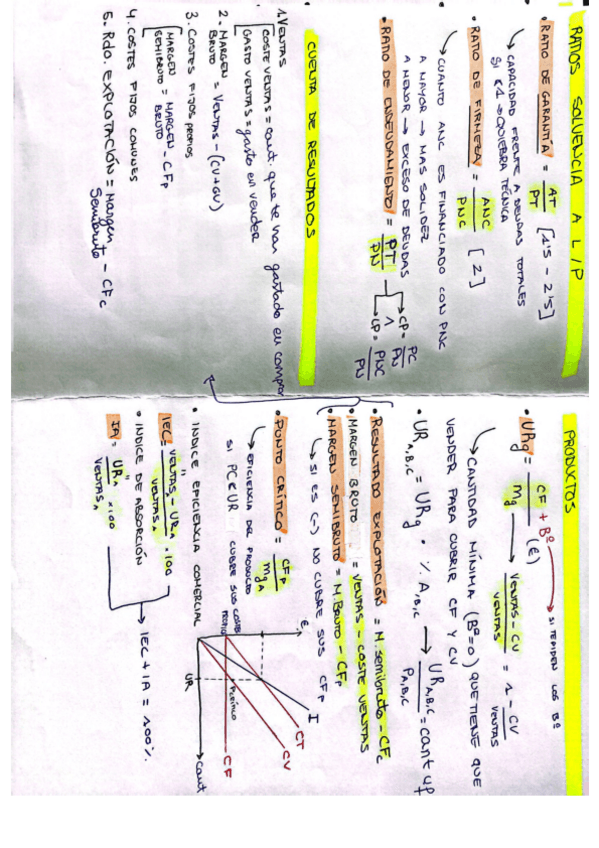 RATIOS SOLVENCIA A L/P
• RATIO DE GARANTÍA = AT / PT [1'5 - 2'5]
→ CAPACIDAD FRENTE A DEUDAS TOTALES
SI <1 → QUIEBRA TÉCNICA
• RATIO DE FIRMEZA = ANC / PNC [2]
→ CUANTO ANC ES FINANCIADO CON PNC
A MAYOR → MAS SOLIDEZ
A MENOR → EXCESO DE DEUDAS
• RATIO DE ENDEUDAMIENTO = PT / PN
→ CP = PC / PN
→ LP = PNC / PN
CUENTA DE RESULTADOS
1. VENTAS
COSTE VENTAS = cant. que te has gastado en comprar
GASTO VENTAS = gasto en vender
2. MARGEN BRUTO = VENTAS - (CV+GV)
3. COSTES FIJOS PROPIOS
MARGEN SEMIBRUTO = MARGEN BRUTO - CFp
4. COSTES FIJOS COMUNES
5. Rdo. EXPLOTACIÓN = Margen Semibruto - CFc
PRODUCTOS
• URg = CF + Bº / mg (€) → SI TE PIDEN LOS Bº
→ VENTAS - CV / VENTAS = 1 - CV / VENTAS
→ CANTIDAD MÍNIMA (Bº=0) QUE TIENE QUE
VENDER PARA CUBRIR CF Y CV
• UR A,B,C = URg · % A,B,C → UR A,B,C / P A,B,C = cant uf
• RESULTADO EXPLOTACIÓN = M. semibruto - CFc
• MARGEN BRUTO = VENTAS - COSTE VENTAS
• MARGEN SEMIBRUTO = M. BRUTO - CFp
→ SI ES (-) NO CUBRE SUS CFp
• PUNTO CRÍTICO = CFp / mgA
→ EFICIENCIA DEL PRODUCTO
SI PC<UR CUBRE SUS COSTES PROPIOS
€
I
CT
CV
CF
P.CRÍTICO
UR
cant
• INDICE EFICIENCIA COMERCIAL
IEC = VENTAS A - UR A / VENTAS A · 100
• INDICE DE ABSORCIÓN
IA = UR A / VENTAS A × 100
→ IEC + IA = 100%.